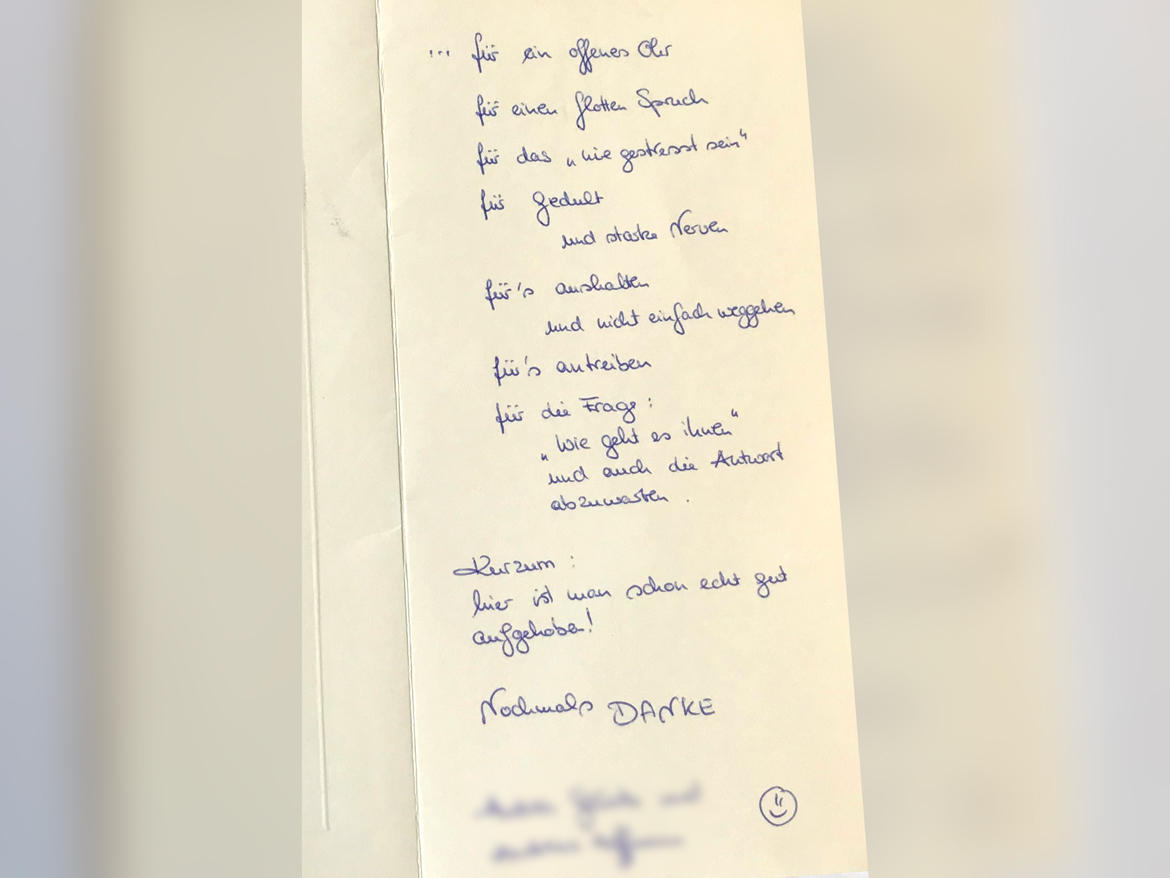 ... für ein offenes Ohr
für einen flotten Spruch
für das „nie gestresst sein“
für Gedult
und starke Nerven
für's aushalten
und nicht einfach weggehen
für's antreiben
für die Frage:
„Wie geht es ihnen“
und auch die Antwort
abzuwarten.
Kurzum:
hier ist man schon echt gut
aufgehoben!
Nochmals DANKE